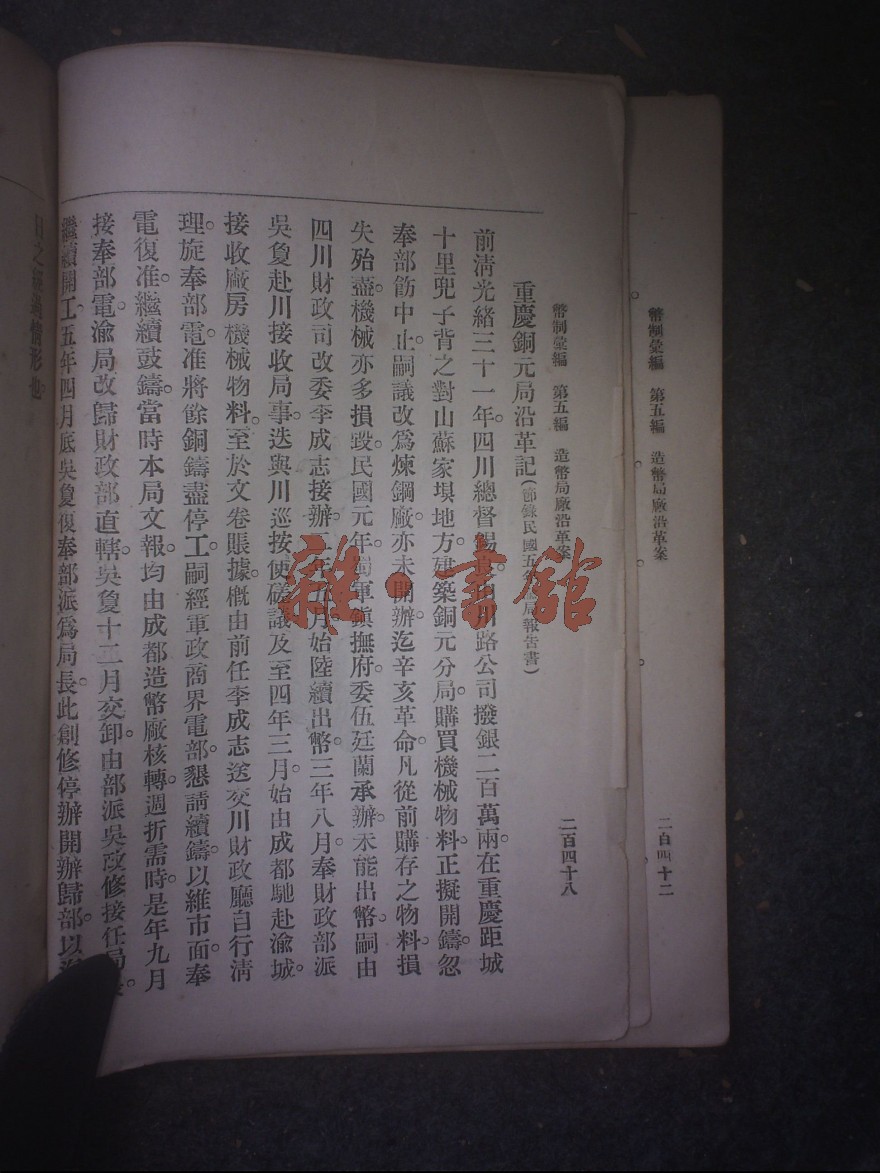 幣制彙編　第五編　造幣局廠沿革案　二百四十二
幣制彙編　第五編　造幣局廠沿革案　二百四十八
重慶銅元局沿革記(節錄民國五年局報告書)
前淸光緖三十一年。四川總督錫由川路公司撥銀二百萬兩。在重慶距城
十里兜子背之對山蘇家埧地方。建築銅元分局。購買機械物料。正擬開鑄。忽
奉部飭中止。嗣議改爲煉鋼廠。亦未開辦。迄辛亥革命。凡從前購存之物料。損
失殆盡。機械亦多損毀。民國元年。蜀軍鎭撫府委伍廷蘭承辦。未能出幣。嗣由
四川財政司改委李成志接辦。二年五月。始陸續出幣。三年八月。奉財政部派
吳敻赴川接收局事。迭與川巡按使磋議。及至四年三月。始由成都馳赴渝城。
接收廠房機械物料。至於文卷賬據。槪由前任李成志送交川財政廳自行淸
理。旋奉部電。准將餘銅鑄盡停工。嗣經軍政商界電部懇請續鑄。以維市面。奉
電復准。繼續鼓鑄。當時本局文報。均由成都造幣廠核轉。週折需時。是年九月
接奉部電。渝局改歸財政部直轄。吳敻十二月交卸。由部派吳改修接任局
繼續開工。五年四月底。吳敻復奉部派爲局長。此創修停辦開辦歸部。以
日之經過情形也。
雜·書館